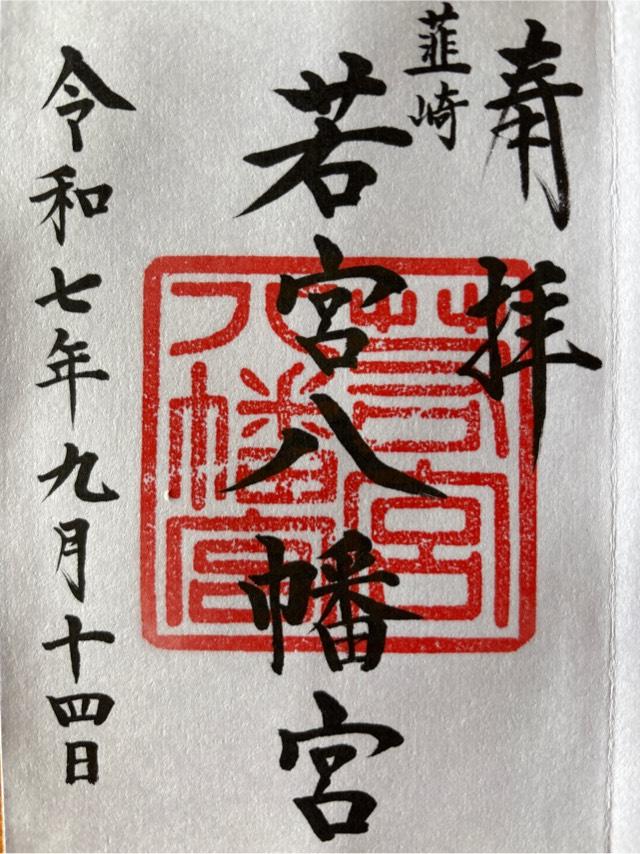 奉拝
韮崎
若宮八幡宮
若宮
八幡宮
令和七年九月十四日